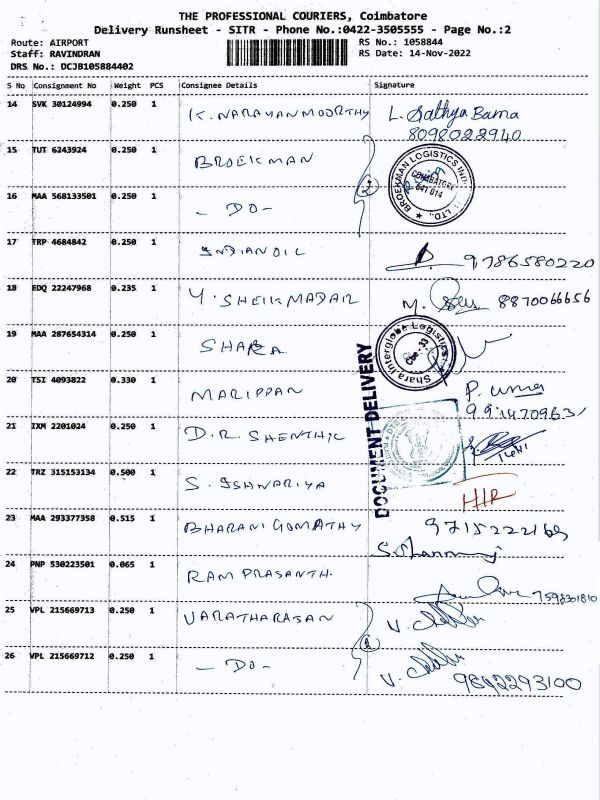 THE PROFESSIONAL COURIERS, Coimbatore
Delivery Runsheet - SITR - Phone No.:0422-3505555 - Page No.:2
Route: AIRPORT RS No.: 1058844
Staff: RAVINDRAN RS Date: 14-Nov-2022
DRS No.: DCJB105884402
S No Consignment No Weight PCS Consignee Details Signature
14 SVK 30124994 0.250 1 K. NARAYANMOORTHY L. Sathya Bama
8098022940
15 TUT 6243924 0.250 1 BROEKMAN
BROEKMAN LOGISTICS LTD.
COIMBATORE
641 014
16 MAA 568133501 0.250 1 - DO -
17 TRP 4684842 0.250 1 INDIAN OIL 9786580220
18 EDQ 22247968 0.235 1 Y. SHEIK MADAR M. 8870066656
19 MAA 287654314 0.250 1 SHARA
Shara Interglobe Logistics
DOCUMENT DELIVERY
20 TSI 4093822 0.330 1 MARIPPAN P. uma
21 IXM 2201024 0.250 1 D.R. SHENTHIL
22 TRZ 315153134 0.500 1 S. ISHWARIYA HIR
23 MAA 293377358 0.515 1 BHARANI GOMATHY
24 PNP 530223501 0.065 1 RAM PRASANTH. 7598301810
25 VPL 215669713 0.250 1 VARATHARASAN V.
26 VPL 215669712 0.250 1 - DO - V.
9892293100